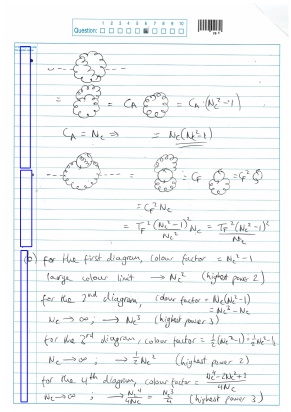 1 2 3 4 5 6 7 8 9 10
Question:
= = C_A = C_A (N_c² - 1)
C_A = N_c ⇒ = N_c(N_c² - 1)
= = C_F = C_F²
= C_F² N_c
= T_F² (N_c² - 1)² / N_c² N_c = T_F² (N_c² - 1)² / N_c
(b) for the first diagram, colour factor = N_c² - 1
large colour limit → N_c² (highest power 2)
for the 2nd diagram, colour factor = N_c(N_c² - 1)
= N_c³ - N_c
N_c → ∞ ; → N_c³ (highest power 3)
for the 3rd diagram, colour factor = ½(N_c² - 1) = ½N_c² - ½
N_c → ∞ ; → ½ N_c² (highest power 2)
for the 4th diagram, colour factor = N_c⁴ - 2N_c² + 1 / 4N_c
N_c → ∞ ; → N_c⁴ / 4N_c = N_c³ / 4 (highest power 3)